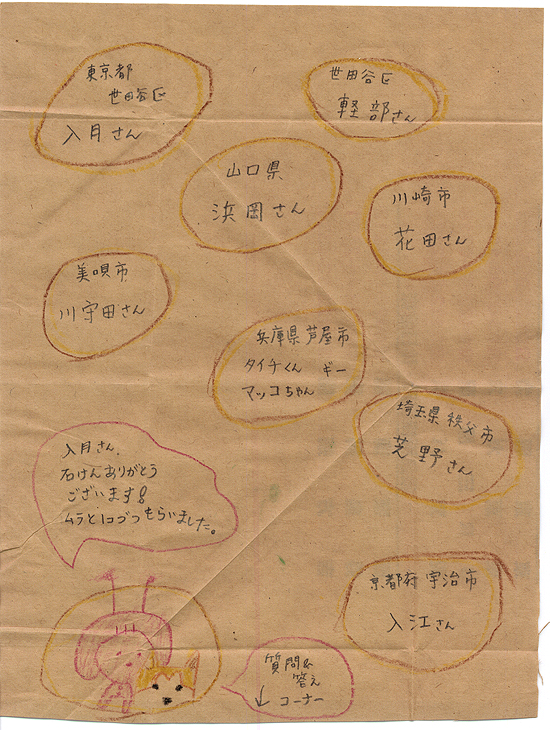 東京都
世田谷区
入月さん
世田谷区
軽部さん
山口県
浜岡さん
川崎市
花田さん
美唄市
川守田さん
兵庫県芦屋市
タイチくん ギー
マッコちゃん
埼玉県秩父市
芝野さん
入月さん、
石けんありがとう
ございます!
ムラと1コづつもらいました。
京都府宇治市
入江さん
質問&
答え
コーナー